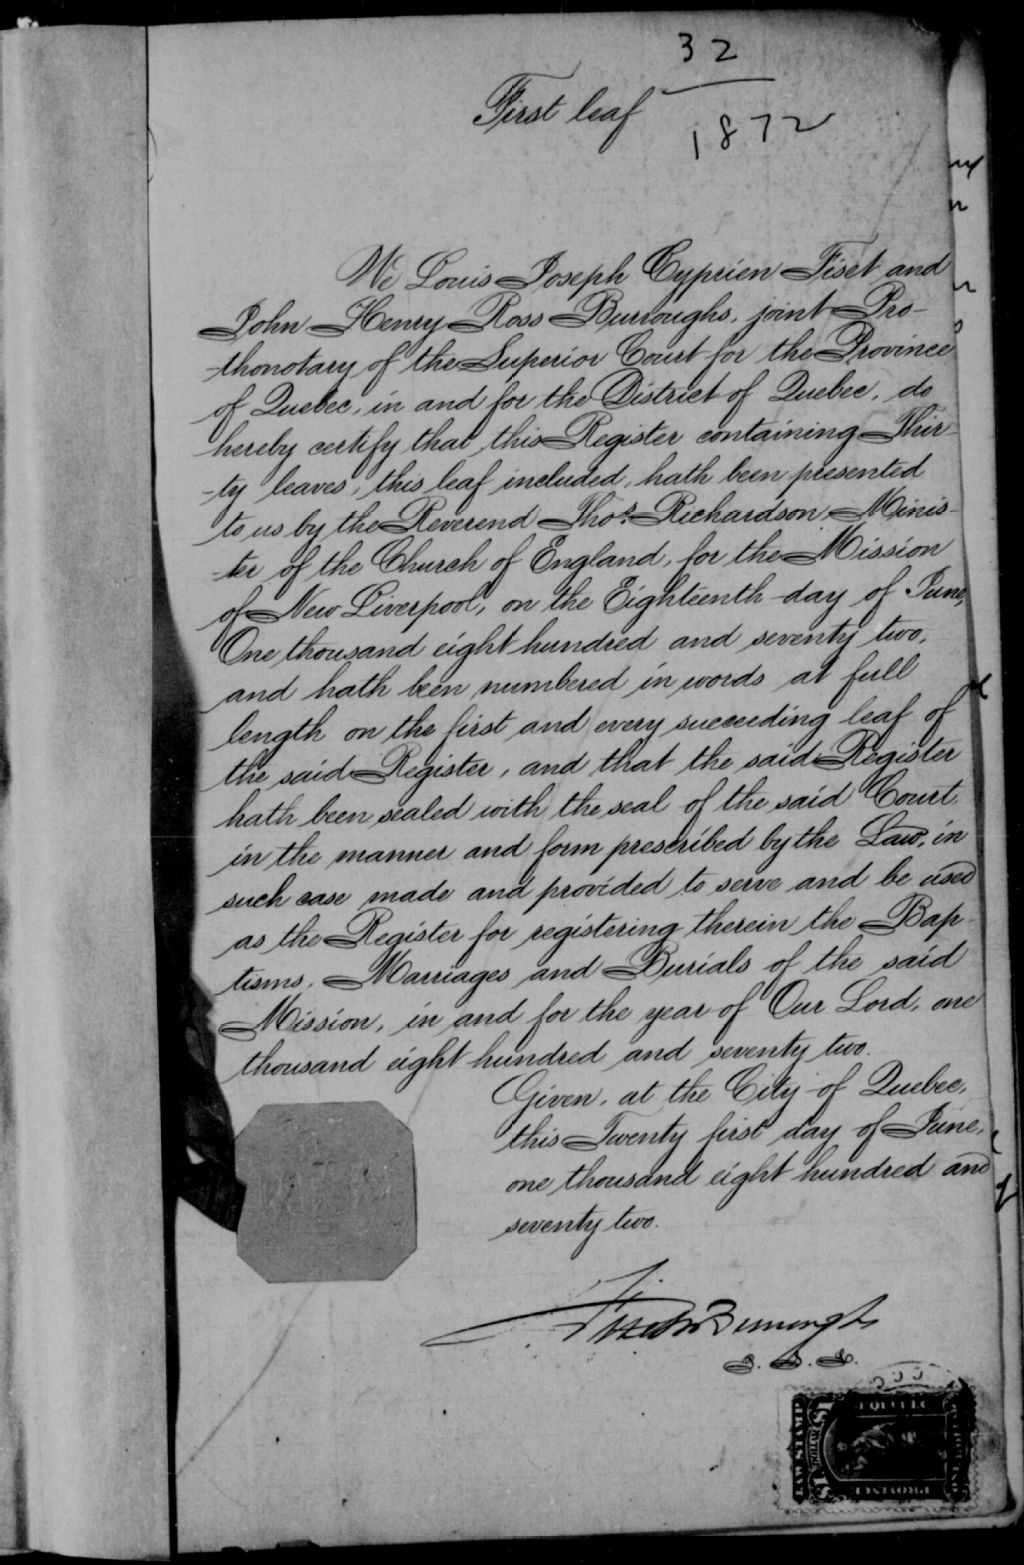 32
First leaf
1872
We Louis Joseph Cyprien Fiset and
John Henry Ross Burroughs, joint Pro-
-thonotary of the Superior Court for the Province
of Quebec, in and for the District of Quebec, do
hereby certify that this Register containing Thir-
-ty leaves, this leaf included, hath been presented
to us by the Reverend Thos. Richardson, Minis-
-ter of the Church of England, for the Mission
of New Liverpool, on the Eighteenth day of June,
One thousand eight hundred and seventy two,
and hath been numbered in words at full
length on the first and every succeeding leaf of
the said Register, and that the said Register
hath been sealed with the seal of the said Court
in the manner and form prescribed by the Law, in
such case made and provided to serve and be used
as the Register for registering therein the Bap-
tisms, Marriages and Burials of the said
Mission, in and for the year of Our Lord, one
thousand eight hundred and seventy two.
Given, at the City of Quebec,
this Twenty first day of June,
one thousand eight hundred and
seventy two.
Fiset Burroughs
QUEBEC
LAW STAMP
$1
DOLLAR
$1
PROVINCE